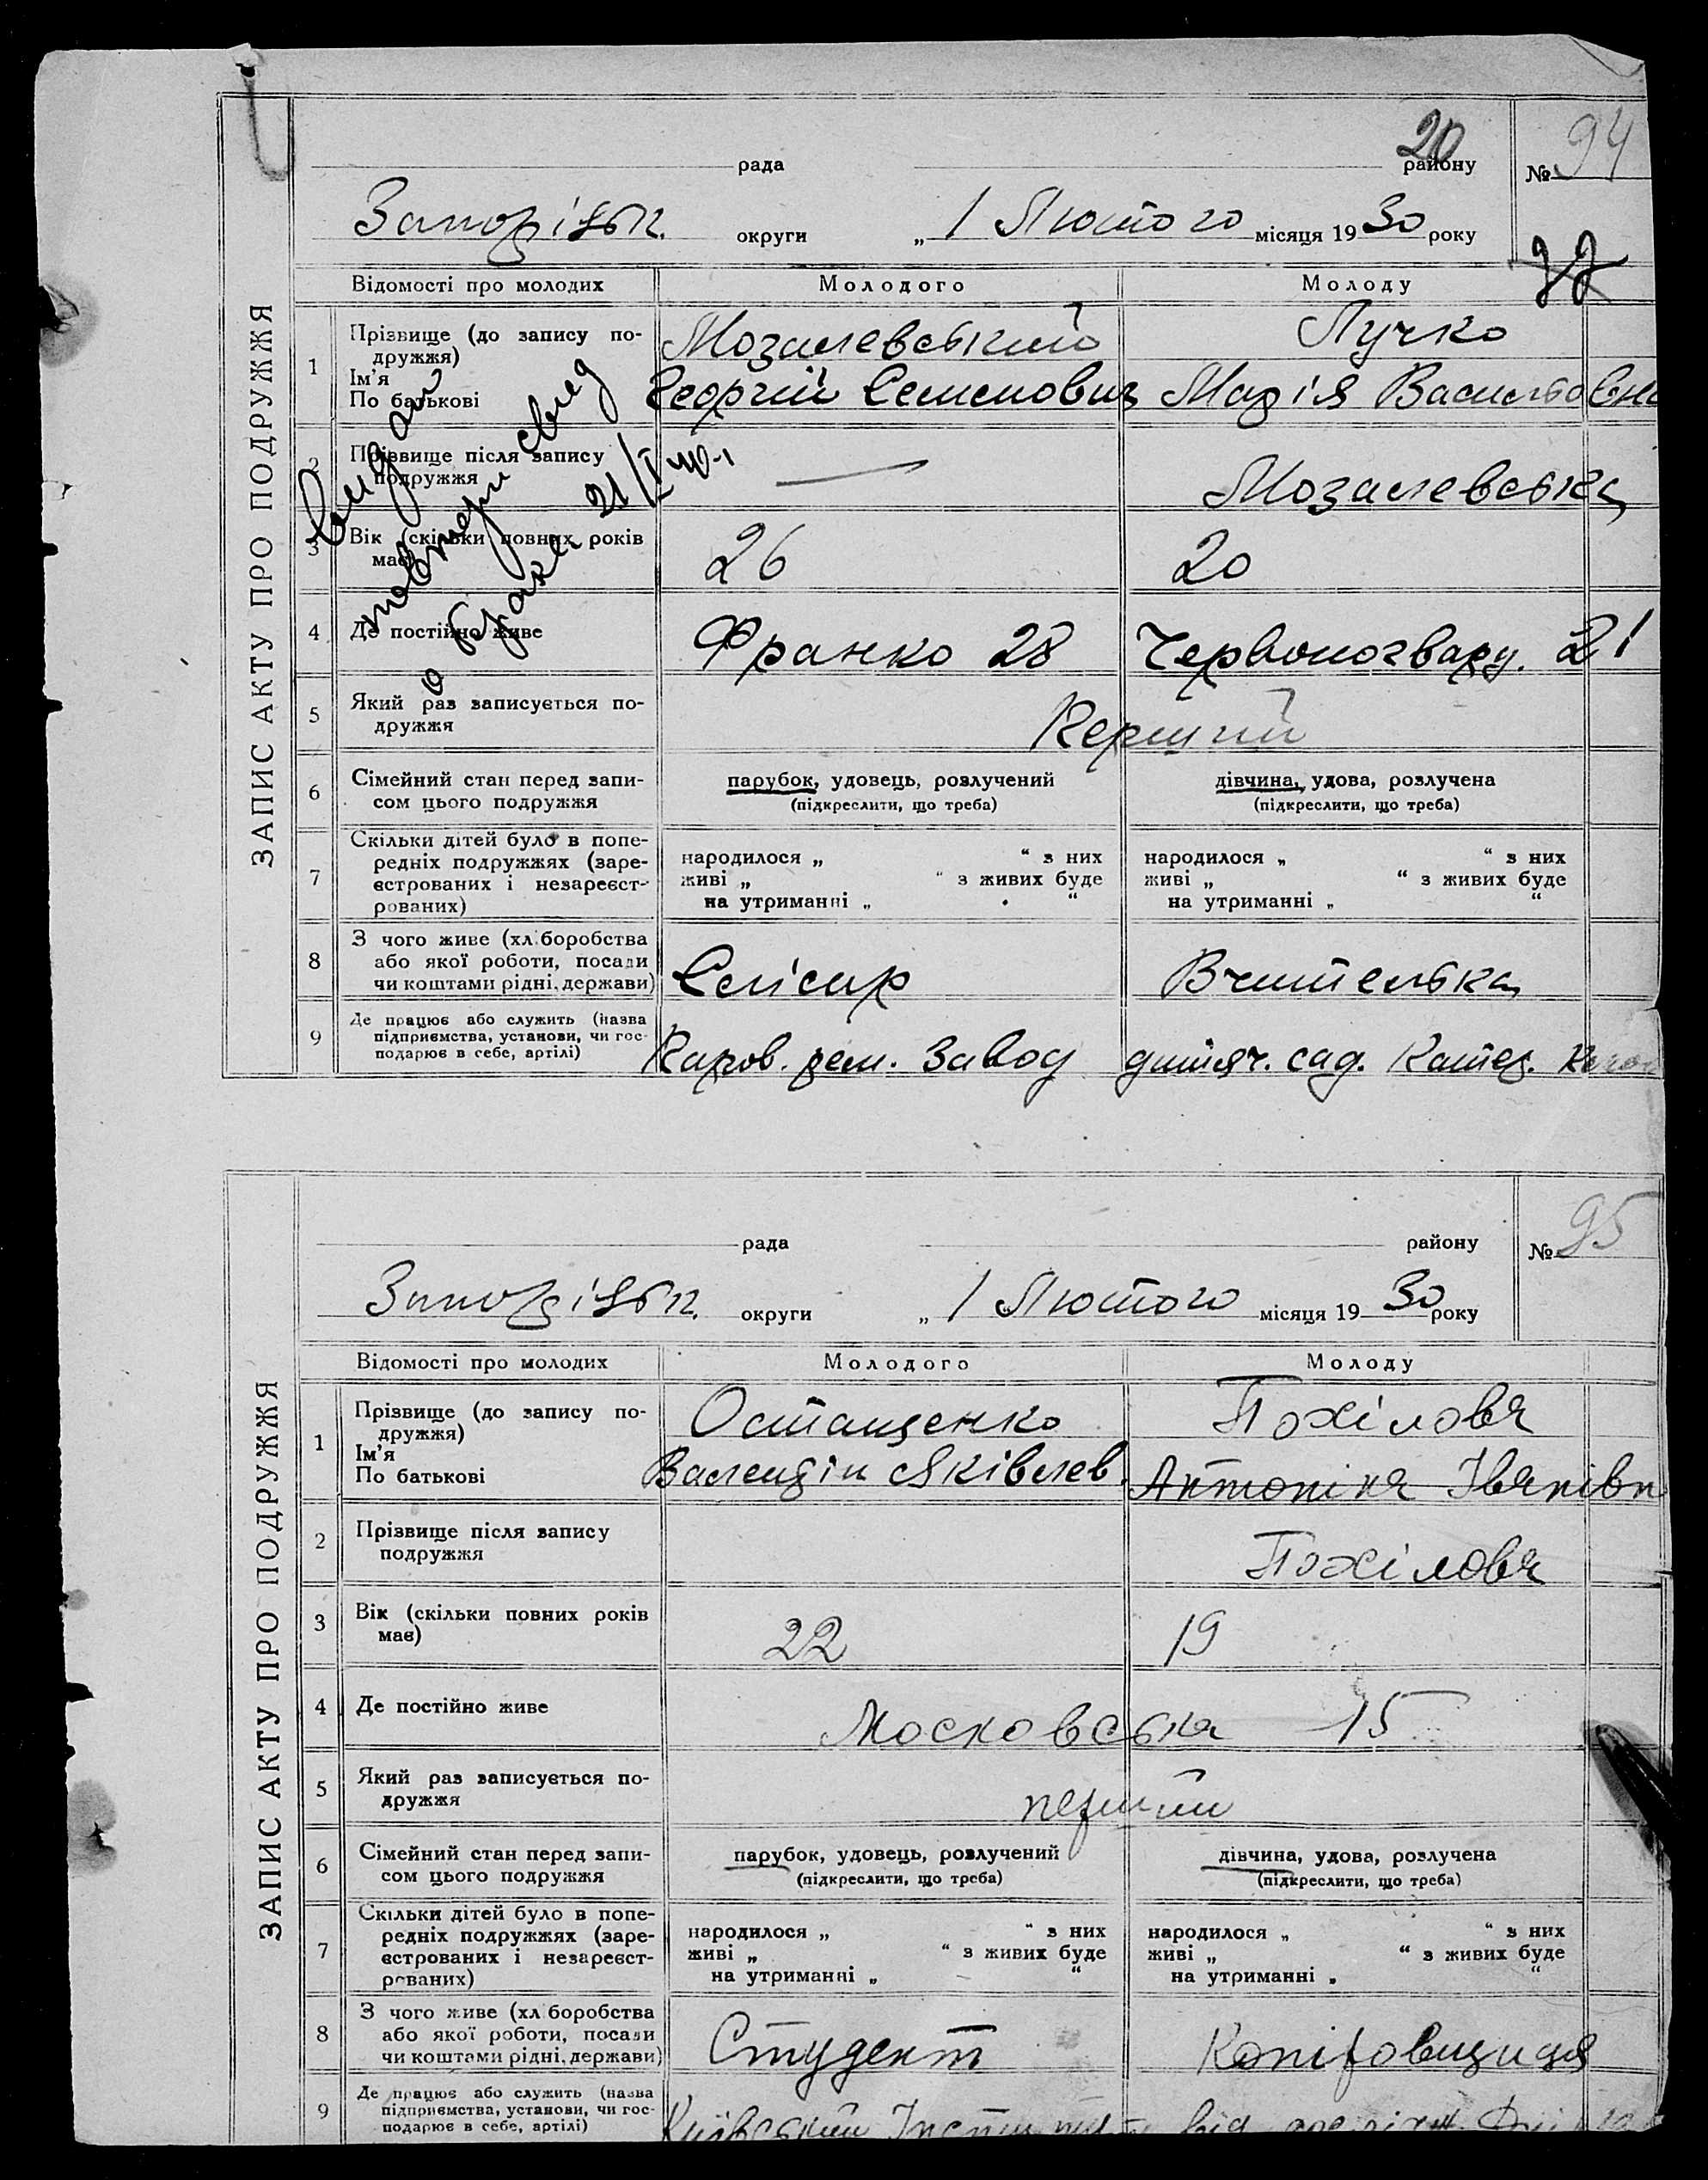 ЗАПИС АКТУ ПРО ПОДРУЖЖЯ
рада
20
району
№ 94
Запоріжк. округи „ 1 Лютого місяця 1930 року
Відомості про молодих
Молодого
Молоду
1
Прізвище (до запису по-
дружжя)
Ім'я
По батькові
Мозалевський
Георгій Семенович
Лучко
Марія Васильовна
2
Прізвище після запису
подружжя
—
Мозалевська
3
Вік (скільки повних років
має)
26
20
видан
повтори свид
о браке 21/I 40.
4
Де постійно живе
Франко 28
Червоногвард. 21
5
Який раз записується по-
дружжя
Перший
6
Сімейний стан перед запи-
сом цього подружжя
парубок, удовець, розлучений
(підкреслити, що треба)
дівчина, удова, розлучена
(підкреслити, що треба)
7
Скільки дітей було в попе-
редніх подружжях (заре-
єстрованих і незареєст-
рованих)
народилося „ “ з них
живі „ “ з живих буде
на утриманні „ “
народилося „ “ з них
живі „ “ з живих буде
на утриманні „ “
8
З чого живе (хліборобства
або якої роботи, посади
чи коштами рідні, держави)
Слісар
Вчителька
9
Де працює або служить (назва
підприємства, установи, чи гос-
подарює в себе, артілі)
Паров. рем. Завод
дитяч. сад. Катер.
ЗАПИС АКТУ ПРО ПОДРУЖЖЯ
рада
району
№ 95
Запоріжк. округи „ 1 Лютого місяця 1930 року
Відомості про молодих
Молодого
Молоду
1
Прізвище (до запису по-
дружжя)
Ім'я
По батькові
Остащенко
Валентін Яківлев.
Похілова
Антоніна Іванівн
2
Прізвище після запису
подружжя
Похілова
3
Вік (скільки повних років
має)
22
19
4
Де постійно живе
Московська 15
5
Який раз записується по-
дружжя
перший
6
Сімейний стан перед запи-
сом цього подружжя
парубок, удовець, розлучений
(підкреслити, що треба)
дівчина, удова, розлучена
(підкреслити, що треба)
7
Скільки дітей було в попе-
редніх подружжях (заре-
єстрованих і незареєст-
рованих)
народилося „ “ з них
живі „ “ з живих буде
на утриманні „ “
народилося „ “ з них
живі „ “ з живих буде
на утриманні „ “
8
З чого живе (хліборобства
або якої роботи, посади
чи коштами рідні, держави)
Студент
Копіровщиця
9
Де працює або служить (назва
підприємства, установи, чи гос-
подарює в себе, артілі)
Київський Інститут
від.